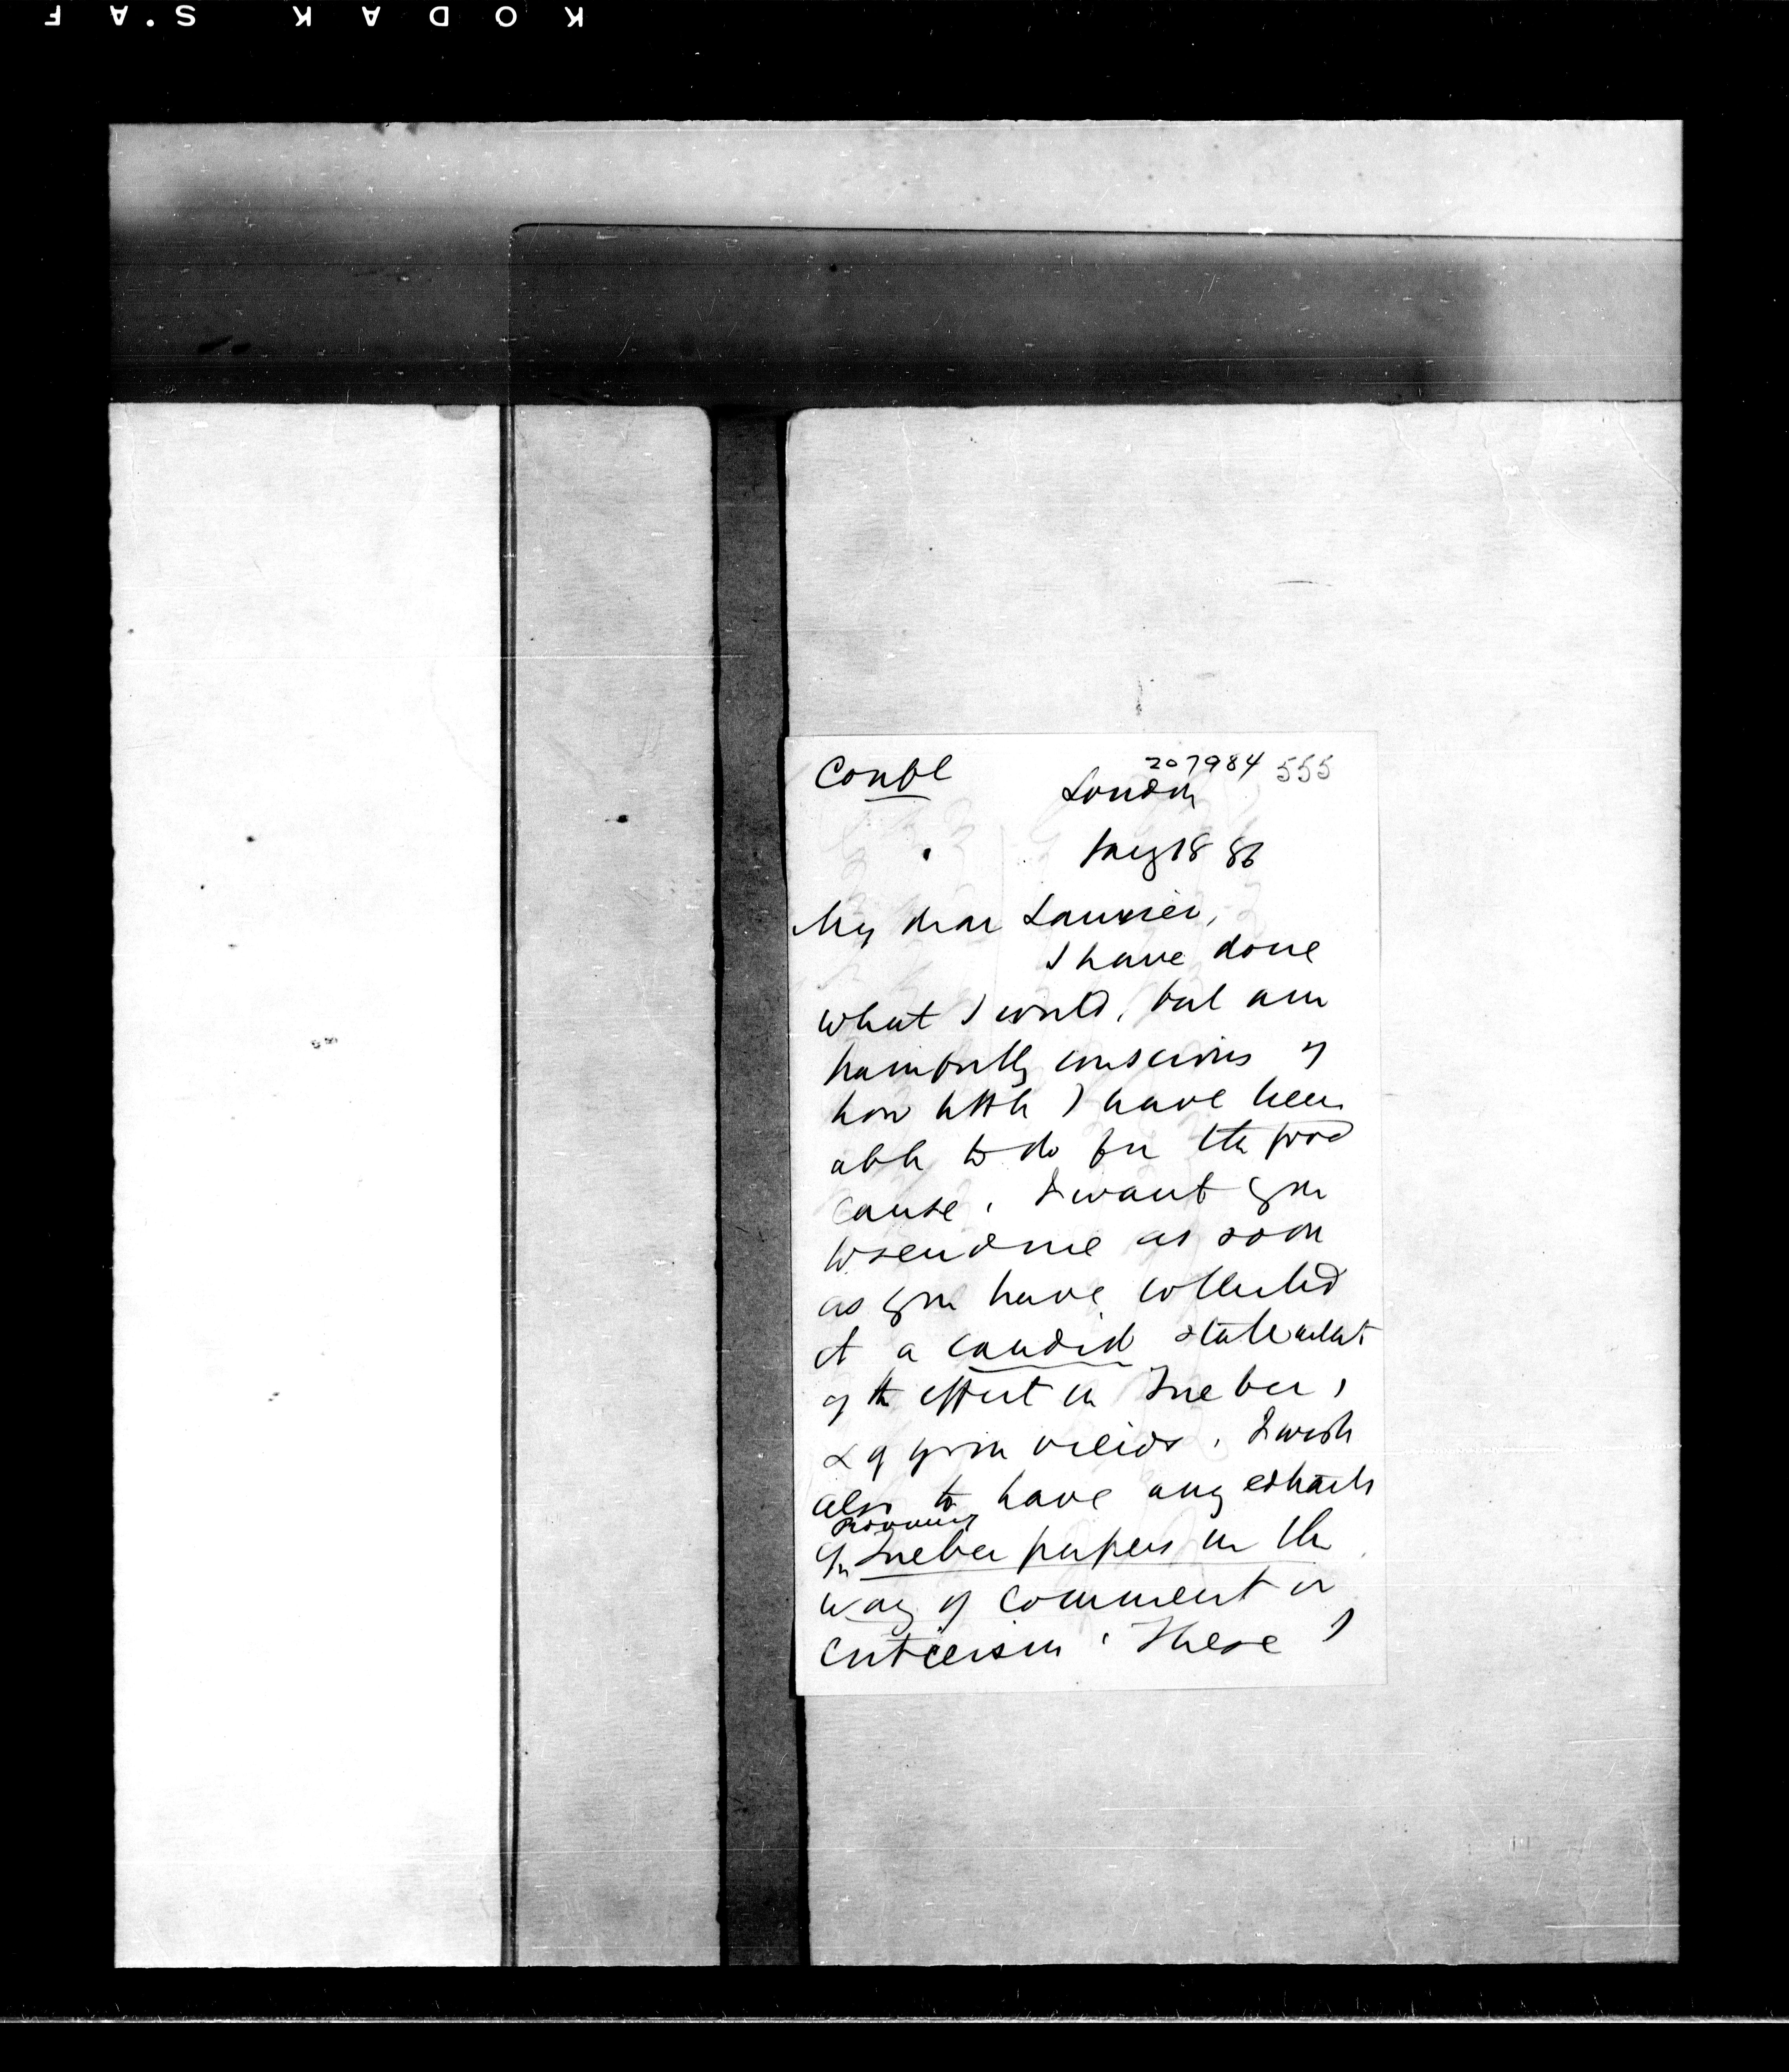 KODAK S.AF
207984 555
Confl
London
Jany 18 86
My dear Laurier,
I have done
what I could, but am
painfully conscious of
how little I have been
able to do for the good
cause. I want you
to send me as soon
as you have collected
it a candid statement
of the effect in Quebec,
& of your views. I wish
also to have any extracts
Province
of Quebec papers in the
way of comment or
criticism. These I